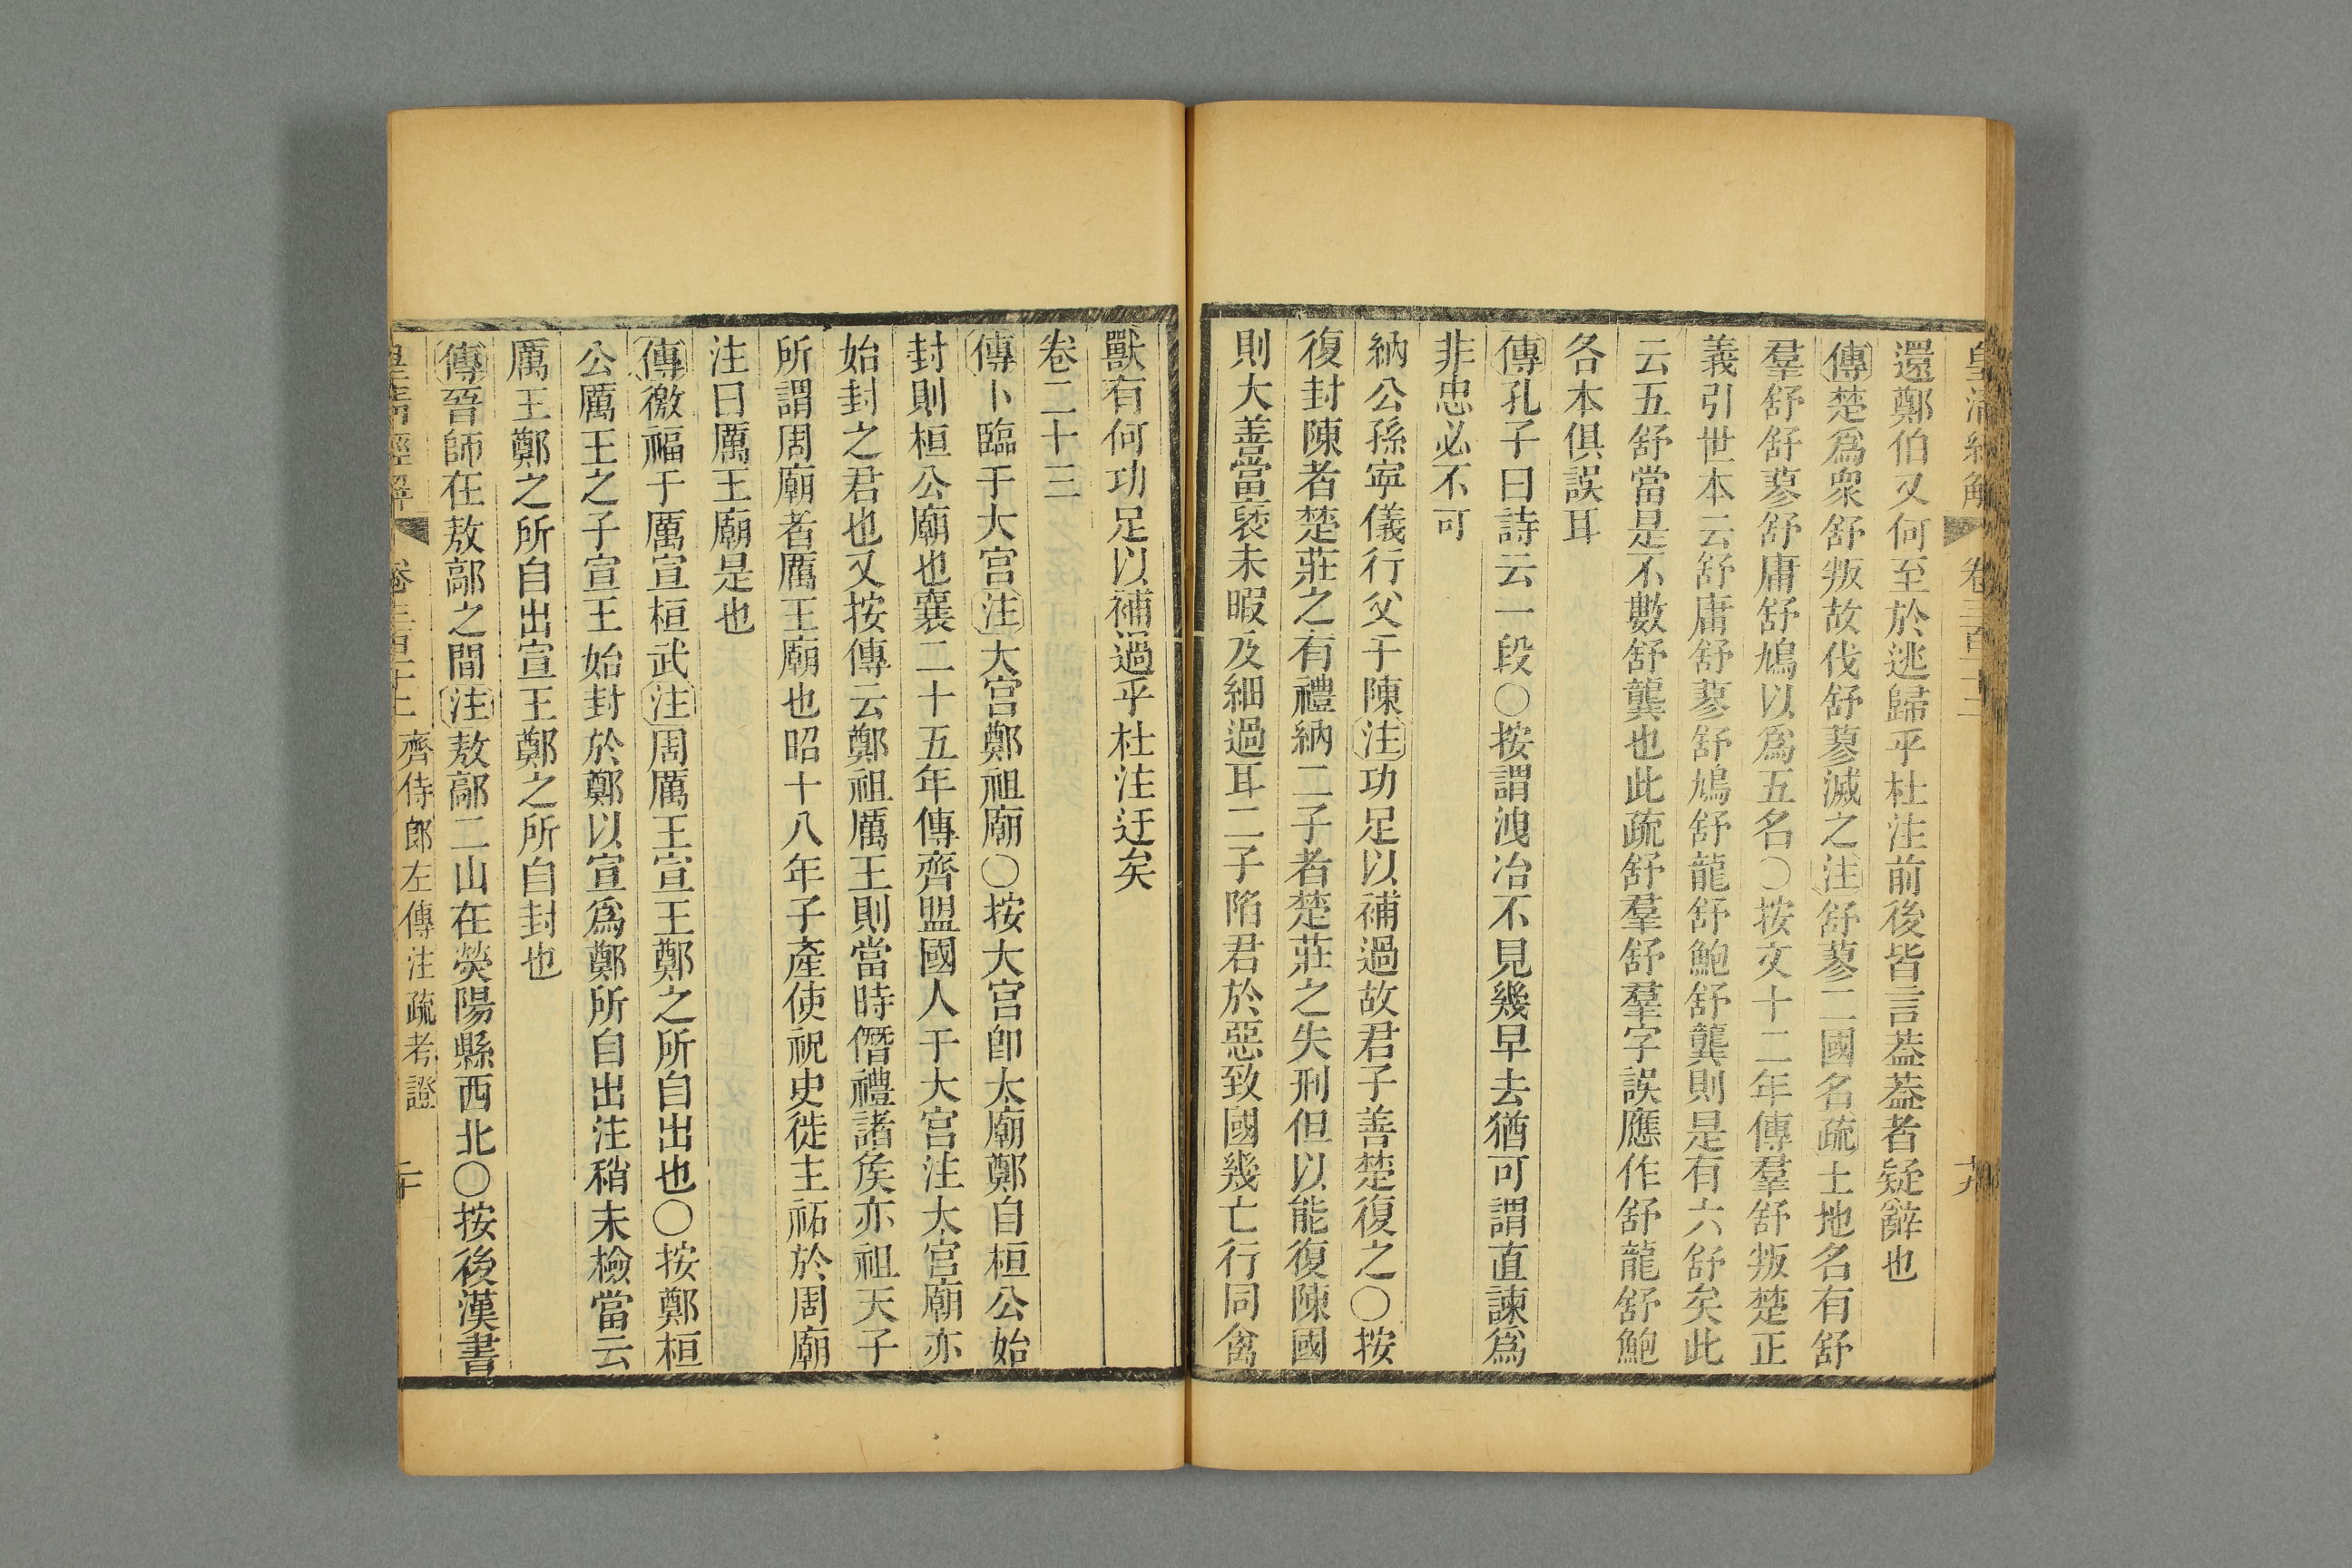 皇清經解 卷三百十二 十九
還鄭伯又何至於逃歸乎杜注前後皆言葢葢者疑辭也
傳楚爲衆舒叛故伐舒蓼滅之注舒蓼二國名疏土地名有舒
羣舒舒蓼舒庸舒鳩以爲五名○按文十二年傳羣舒叛楚正
義引世本云舒庸舒蓼舒鳩舒龍舒鮑舒龔則是有六舒矣此
云五舒當是不數舒龔也此疏舒羣舒羣字誤應作舒龍舒鮑
各本俱誤耳
傳孔子曰詩云一段○按謂洩冶不見幾早去猶可謂直諫爲
非忠必不可
納公孫寧儀行父于陳注功足以補過故君子善楚復之○按
復封陳者楚莊之有禮納二子者楚莊之失刑但以能復陳國
則大善當襃未暇及細過耳二子陷君於惡致國幾亡行同禽
獸有何功足以補過乎杜注迂矣
卷二十三
傳卜臨于大宫注大宫鄭祖廟○按大宫卽太廟鄭自桓公始
封則桓公廟也襄二十五年傳齊盟國人于大宫注太宫廟亦
始封之君也又按傳云鄭祖厲王則當時僭禮諸矦亦祖天子
所謂周廟者厲王廟也昭十八年子產使祝史徙主祏於周廟
注曰厲王廟是也
傳徼福于厲宣桓武注周厲王宣王鄭之所自出也○按鄭桓
公厲王之子宣王始封於鄭以宣爲鄭所自出注稍未檢當云
厲王鄭之所自出宣王鄭之所自封也
傳晉師在敖鄗之間注敖鄗二山在熒陽縣西北○按後漢書
皇清經解 卷三百十二 齊侍郎左傳注疏考證 二十